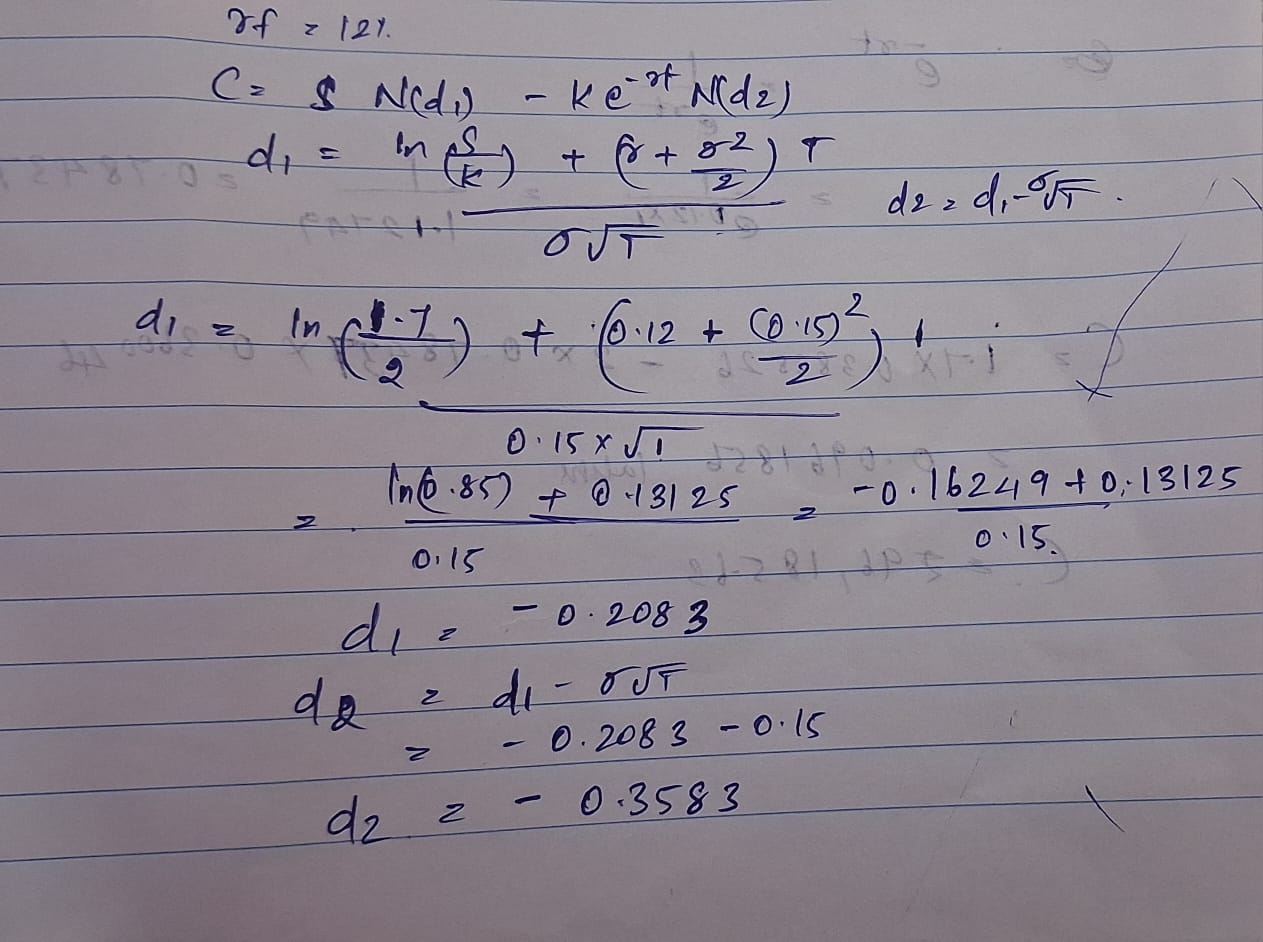 rf = 12%.
C = S N(d₁) - Ke^-rt N(d2)
d₁ = ln (S/K) + (r + σ²/2) T
σ√T
d2 = d₁-σ√T.
d₁ = ln (1.7/2) + (0.12 + (0.15)²/2) 1
0.15 x √1
= ln(0.85) + 0.13125 / 0.15 = -0.16249 + 0.13125 / 0.15.
d₁ = -0.2083
d2 = d₁ - σ√T
= -0.2083 - 0.15
d2 = -0.3583